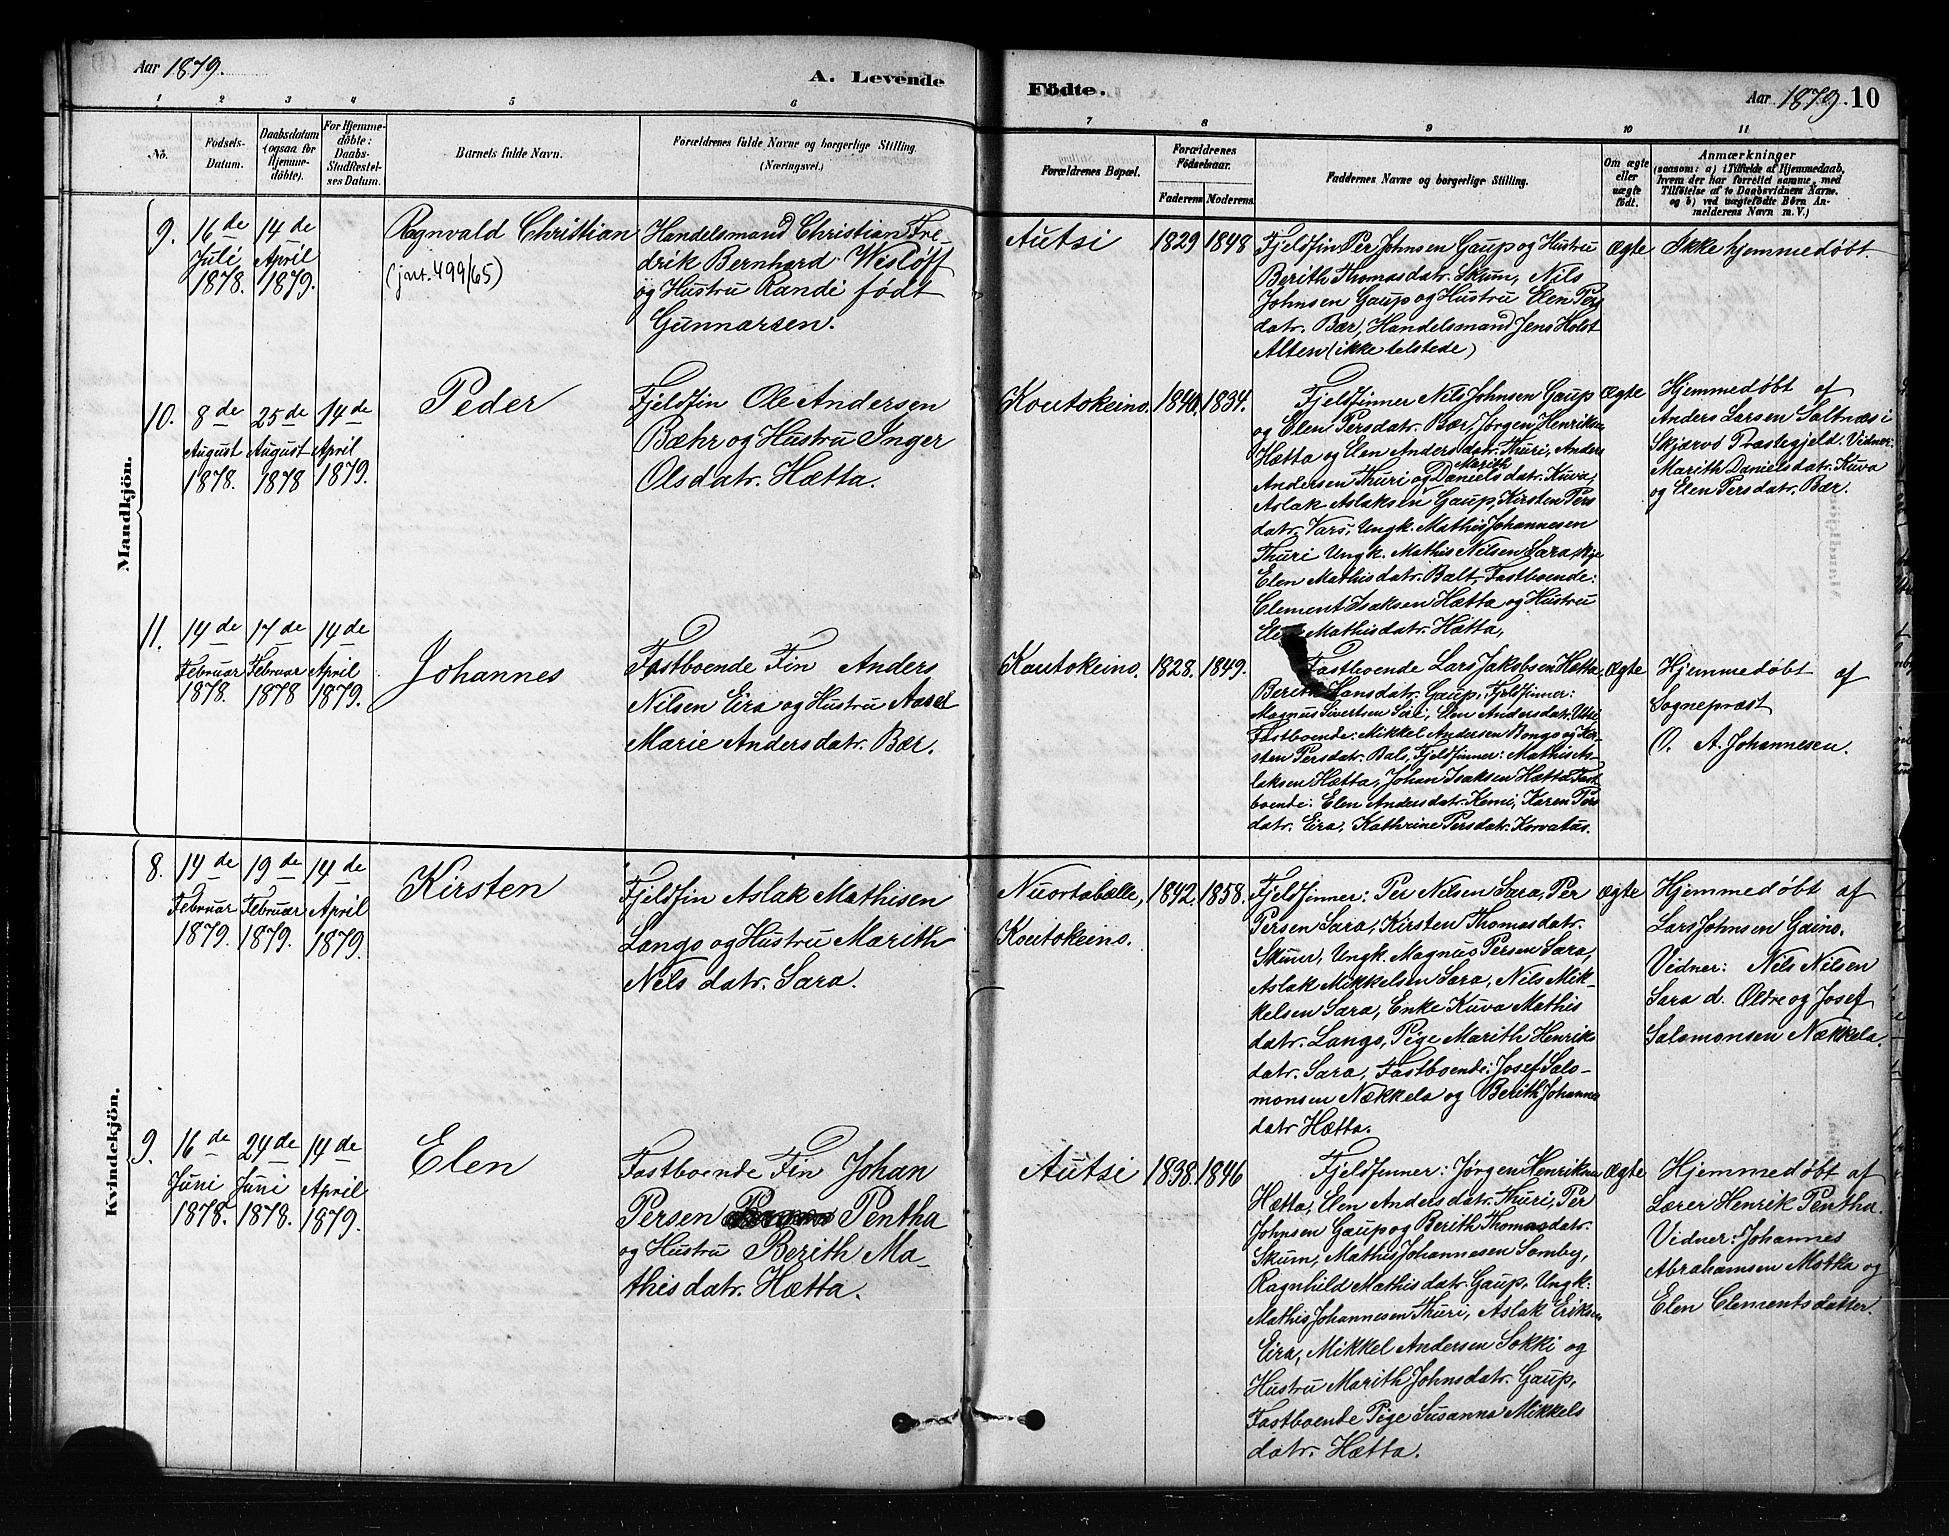 Aar 1879.
A. Levende
Födte.
Aar 1879. 10
1 2 3 4 5 6 7 8 9 10 11
No.
Födsels-
Datum.
Daabsdatum
(ogsaa for
Hjemme-
döbte).
For Hjemme-
döbte:
Daabs-
Stadfestel-
ses Datum.
Barnets fulde Navn.
Forældrenes fulde Navne og borgerlige Stilling.
(Næringsvei.)
Forældrenes Bopæl.
Forældrenes
Födselsaar.
Faderens Moderens
Faddernes Navne og borgerlige Stilling.
Om ægte
eller
uægte
født.
Anmærkninger
(saasom: a) i Tilfælde af Hjemmedaab,
hvem der har forrettet samme, med
Tilföielse af to Daabsvidners Navne,
og b) ved uægtefödte Börn An-
melderens Navn m. V.)
Mandkjön.
9.
16 de
Juli
1878.
14 de
April
1879.
Ragnvald Christian
(jnr. 499/65)
Handelsmand Christian Fre
drik Bernhard Wisløff
og Hustru Randi født
Gunnarsen.
Autsi
1829 1848
Fjeldfin Per Johnsen Gaup og Hustru
Berith Thomasdatr. Skum, Nils
Johnsen Gaup og Hustru Elen Pers
datr. Bær, Handelsmand Jens Holst
Alten (ikke tilstede)
ægte
Ikke hjemmedøbt.
10.
8 de
August
1878.
25 de
August
1878
14 de
April
1879.
Peder
Fjeldfin Ole Andersen
Bæhr og Hustru Inger
Olsdatr. Hætta.
Koutokeino.
1840. 1834.
Fjeldfinner Nils Johnsen Gaup
og Elen Persdatr. Bær, Jørgen Henriksn
Hætta og Elen Andersdatr. Thuri, Anders
Andersen Thuri og Marith Danielsdatr. Kuva,
Aslak Aslaksen Gaup, Kirsten Pers
datr. Vars, Ungk. Mathis Johannesen
Thuri Ungk. Mathis Nilsen Sara, Pige
Elen Mathisdatr. Balt, Fastboende:
Clement Isaksen Hætta og Hustru
Elen Mathisdatr. Hætta,
ægte
Hjemmedøbt af
Anders Larsen Saltnæs i
Skjærvö Præstegjeld. Vidner:
Marith Danielsdatr. Kuva
og Elen Persdatr. Bær.
11.
14 de
Februar
1878.
17 de
Februar
1878
14 de
April
1879.
Johannes
Fastboende Fin Anders
Nilsen Eira og Hustru Aasel
Marie Andersdatr. Bær.
Koutokeino.
1828. 1849.
Fastboende Lars Jakobsen Hætta,
Berith Hansdatr. Gaup, Fjeldfinner:
Magnus Sivertsen Siri, Elen Andersdatr. Utsi
Fastboende: Mikkel Andersen Bongo og Kir-
sten Persdatr. Bals, Fjeldfinner: Mathis As-
laksen Hætta, Johan Isaksen Hætta Fast-
boende: Elen Andersdatr. Kemi, Karen Pers
datr. Eira, Kathrine Persdatr. Korvatus.
ægte
Hjemmedøbt af
Sognepræst
O. A. Johannesen.
Kvindekjön.
8.
14 de
Februar
1879.
19 de
Februar
1879.
14 de
April
1879.
Kirsten
Fjeldfin Aslak Mathisen
Lango og Hustru Marith
Nils datr. Sara.
Nuortabælle,
Koutokeino.
1842. 1858.
Fjeldfinner: Per Nilsen Sara, Per
Persen Sara, Kirsten Thomasdatr.
Skum, Ungk. Magnus Persen Sara,
Aslak Mikkelsen Sara, Nils Mik-
kelsen Sara, Enke Kuva Mathis
datr. Lango, Pige Marith Henriks
datr. Sara, Fastboende: Josef Salo-
monsen Nækkela og Berith Johannes
datr Hætta.
ægte
Hjemmedøbt af
Lars Johnsen Gaino.
Vidner: Nils Nilsen
Sara d. Ældre og Josef
Salomonsen Nækkela.
9.
16 de
Juni
1878.
24 de
Juni
1878.
14 de
April
1879.
Elen
Fastboende Fin Johan
Persen Pentha
og Hustru Berith Ma-
this datr. Hætta.
Autsi
1838. 1846
Fjeldfinner: Jørgen Henriksn
Hætta, Elen Andersdatr. Thuri, Per
Johnsen Gaup og Berith Thomasdatr.
Skum, Mathis Johannesen Somby,
Ragnhild Mathisdatr. Gaup, Ungk:
Mathis Johannesen Thuri, Aslak Eriksen
Eira, Mikkel Andersen Sokki og
Hustru Marith Johnsdatr. Gaup,
Fastboende Pige Susanna Mikkels
datr. Hætta.
ægte
Hjemmedøbt af
Lærer Henrik Pentha.
Vidner: Johannes
Abrahamsen Motka og
Elen Clementsdatter.